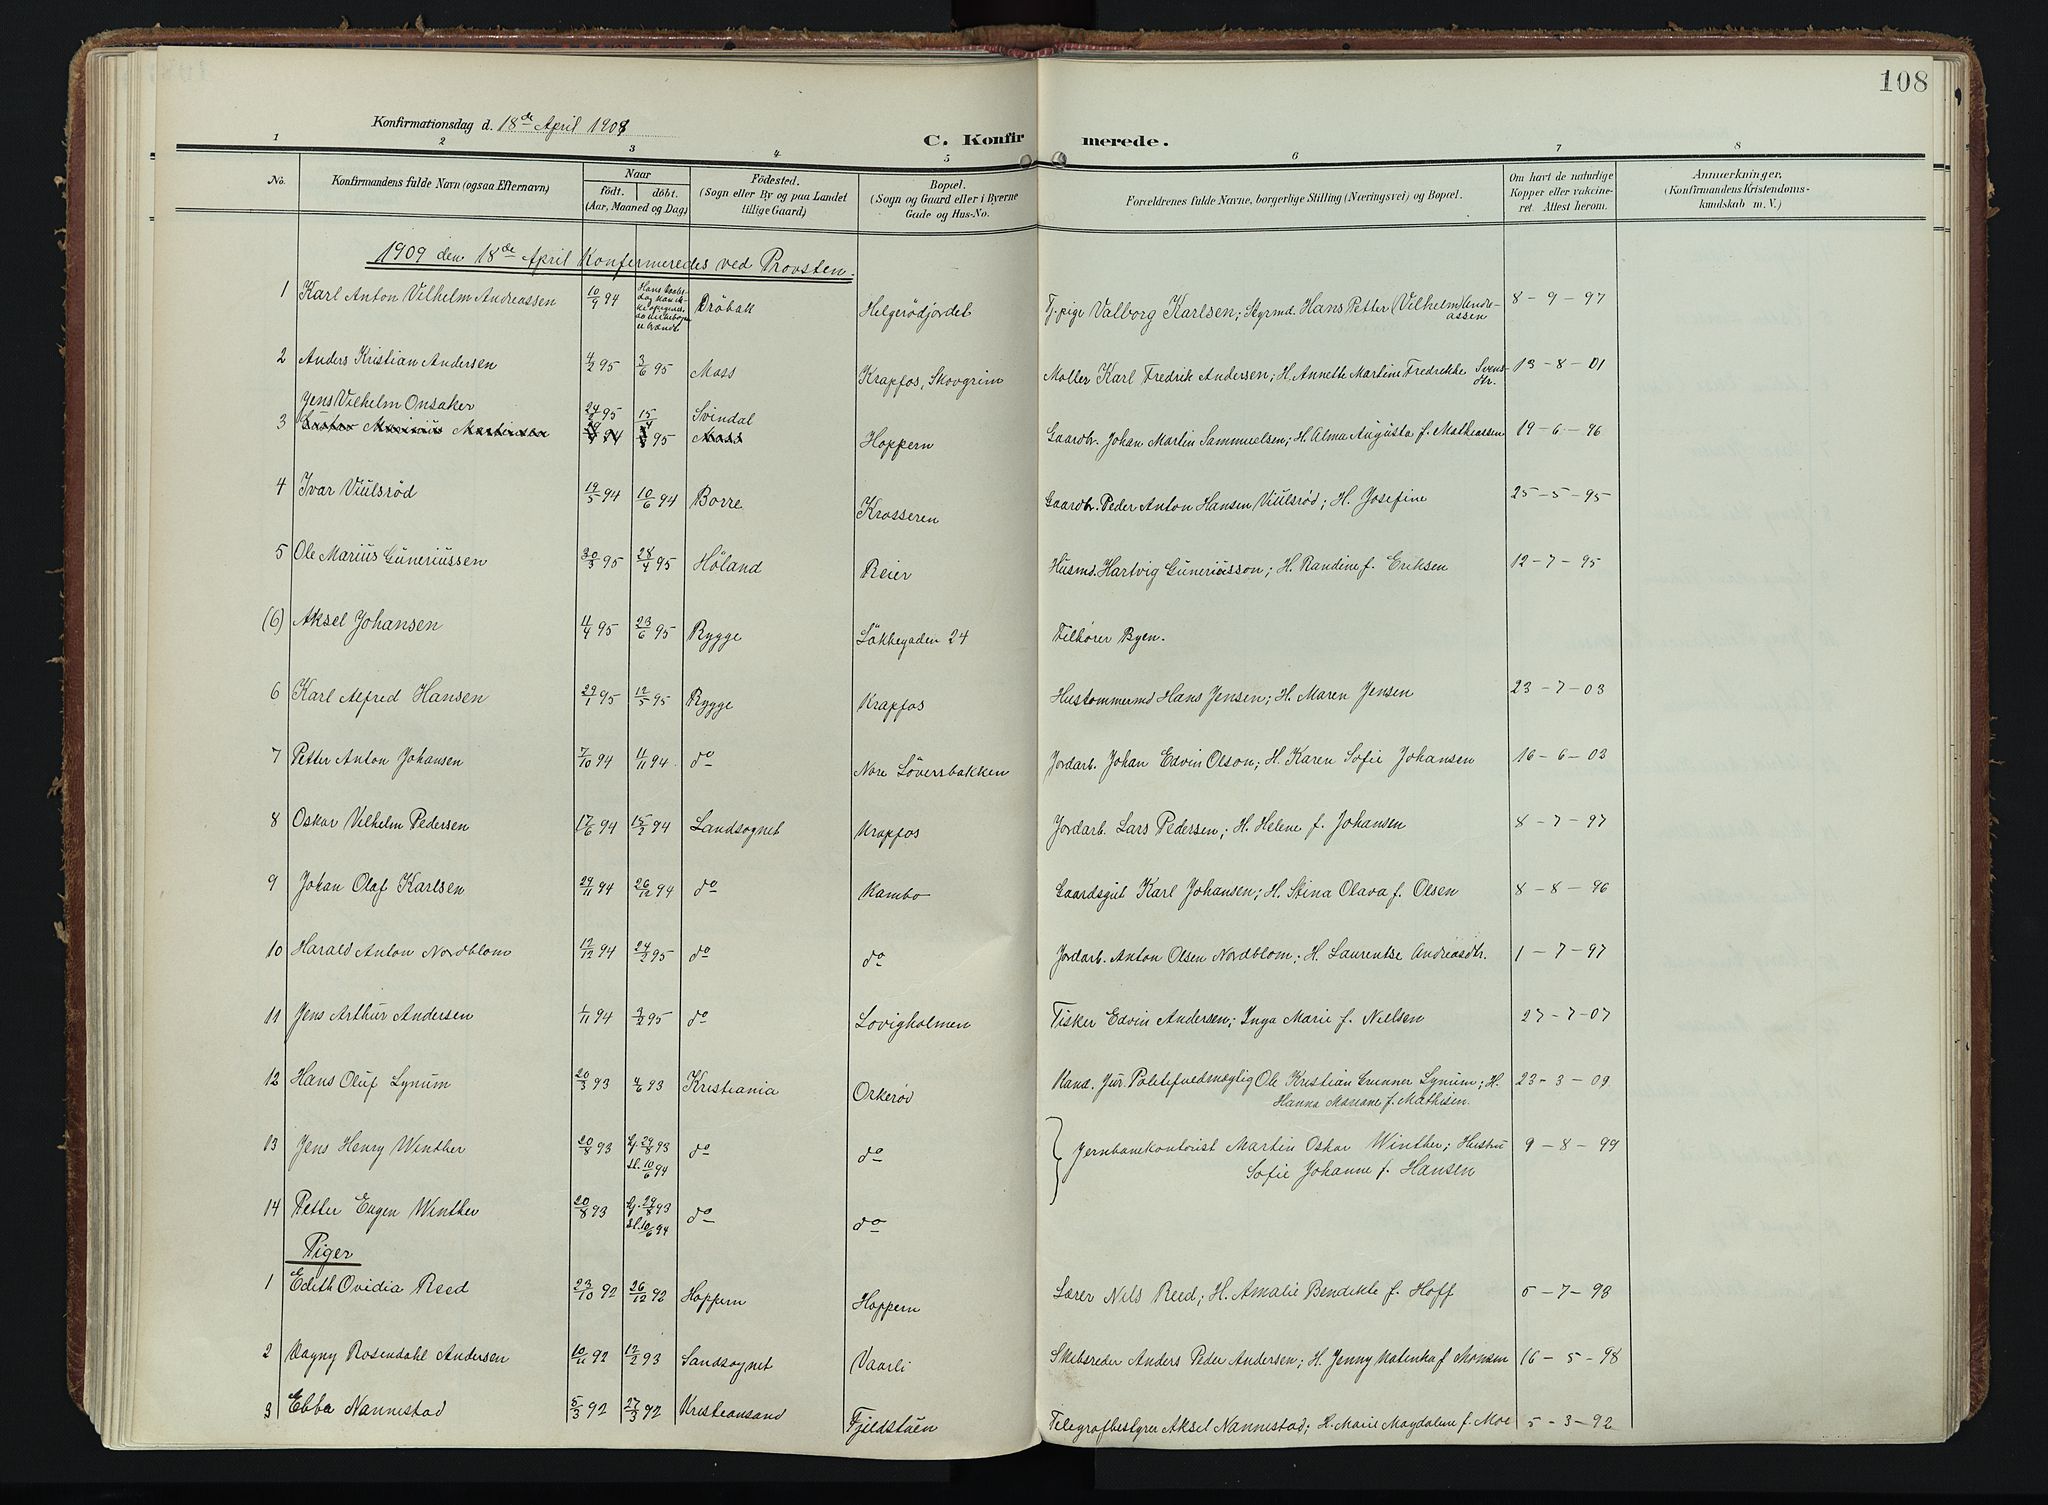 108
Konfirmationsdag d. 18de April 1909
C. Konfirmerede.
1 2 3 4 5 6 7 8
No. Konfirmandens fulde Navn (ogsaa Efternavn) Naar födt. döbt. (Aar, Maaned og Dag) Födested. (Sogn eller By og paa Landet tillige Gaard) Bopæl. (Sogn og Gaard eller i Byerne Gade og Hus-No. Forældrenes fulde Navne, borgerlige Stilling (Næringsvei) og Bopæl. Om havt de naturlige Kopper eller vakcineret. Attest herom. Anmærkninger. (Konfirmandens Kristendomskundskab m. V.)
1909 den 18de April Konfirmeredes ved Provsten.
1 Karl Anton Vilhelm Andreassen 10/9 94 Dröbak Helgerödjordet Tj.pige Valborg Karlsen; Styrmd. Hans Petter (Vilhelm) Andreassen 8-9-97
2 Anders Kristian Andersen 4/2 95 3/6 95 Moss Krapfos, Skovgrim Møller Karl Fredrik Andersen; H. Annette Martine Fredrikke Svensdtr. 13-8-01
3 Jens Vilhelm Onsaker 24/2 95 15/4 95 Svindal Hoppern Gaardbr. Johan Martin Sammuelsen; H. Alma Augusta f. Matheassen 19-6-96
4 Ivar Viulsrød 19/5 94 10/6 94 Borre Krosseren Gaardbr. Peder Anton Hansen Viulsrød; H. Josefine 25-5-95
5 Ole Marius Guneriussen 30/3 95 28/4 95 Høland Reier Husmd. Hartvig Guneriusson; H. Randine f. Eriksen 12-7-95
(6) Aksel Johansen 11/4 95 23/6 95 Rygge Løkkegaden 24 Tilhører Byen.
6 Karl Alfred Hansen 29/1 95 12/5 95 Rygge Krapfos Hustømmermd Hans Jensen; H. Maren Jensen 23-7-03
7 Petter Anton Johansen 7/10 94 11/11 94 do Nore Löversbakken Jordarb. Johan Edvin Olson; H. Karen Sofie Johansen 16-6-03
8 Oskar Vilhelm Pedersen 17/6 94 15/2 94 Landsognet Krapfos Jordarb. Lars Pedersen; H. Helene f. Johansen 8-7-97
9 Johan Olaf Karlsen 29/11 94 26/12 94 do Kambo Gaardsgut Karl Johansen; H. Stina Olava f. Olsen 8-8-96
10 Harald Anton Nordblom 12/12 94 24/2 95 do do Jordarb. Anton Olsen Nordblom; H. Laurentse Andreasdtr. 1-7-97
11 Jens Arthur Andersen 1/11 94 3/2 95 do Lovigholmen Fisker Edvin Andersen; Inga Marie f. Nielsen 27-7-07
12 Hans Oluf Lynum 20/3 93 4/6 93 Kristiania Orkerød Kand. jur. Politifuldmægtig Ole Kristian Grunner Lynum; H. Hanna Mariane f. Mathisen. 23-3-09
13 Jens Henry Winther 20/8 93 hj. 29/8 93 st. 10/6 94 do do Jernbanekontorist Martin Oskar Winther; Hustru Sofie Johanne f. Hansen 9-8-99
14 Petter Eugen Winther 20/8 93 hj. 29/8 93 st. 10/6 94 do do
Piger
1 Edith Ovidia Reed 23/10 92 26/12 92 Hoppern Hoppern Lærer Nils Reed; H. Amalie Bendikte f. Hoff 5-7-93
2 Dagny Rosendahl Andersen 10/11 92 12/2 93 Landsognet Vaarli Skibsreder Anders Peder Andersen; H. Jenny Matenka f. Monsen 16-5-98
3 Ebba Nannestad 5/3 92 27/3 92 Kristiansand Fjeldstuen Telegrafbestyrer Aksel Nannestad; H. Marie Magdalene f. Moe 5-3-92